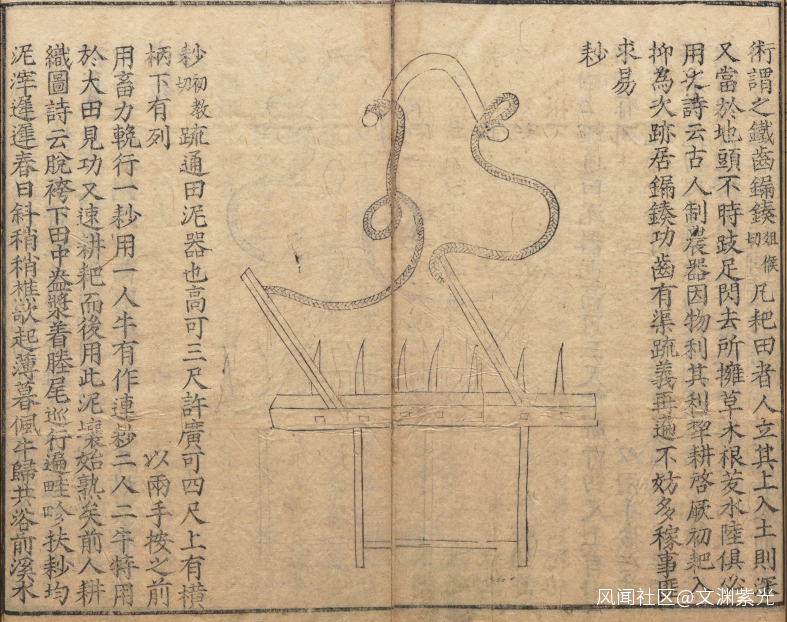 術謂之鐵齒 徂候切 凡耙田者人立其上入土則深
又當於地頭不時跂足閃去所擁草木根荄水陸俱必
用 詩云古人制農器因物利其利犁耕啓厥初耙入
抑為次跡居 功齒有渠疏義再遍不妨多稼事庶
求易
耖
耖 初教切 疏通田泥器也高可三尺許廣可四尺上有橫
柄下有列 以兩手按之前
用畜力輓行一耖用一人牛有作連耖二人二牛特用
於大田見功又速耕耙而後用此泥壤始熟矣前人耕
織圖詩云脫袴下田中盎漿着塍尾巡行遍畦畛扶耖均
泥滓遲遲春日斜稍稍樵歌起薄暮佩牛歸共浴前溪水
风闻社区@文渊紫光